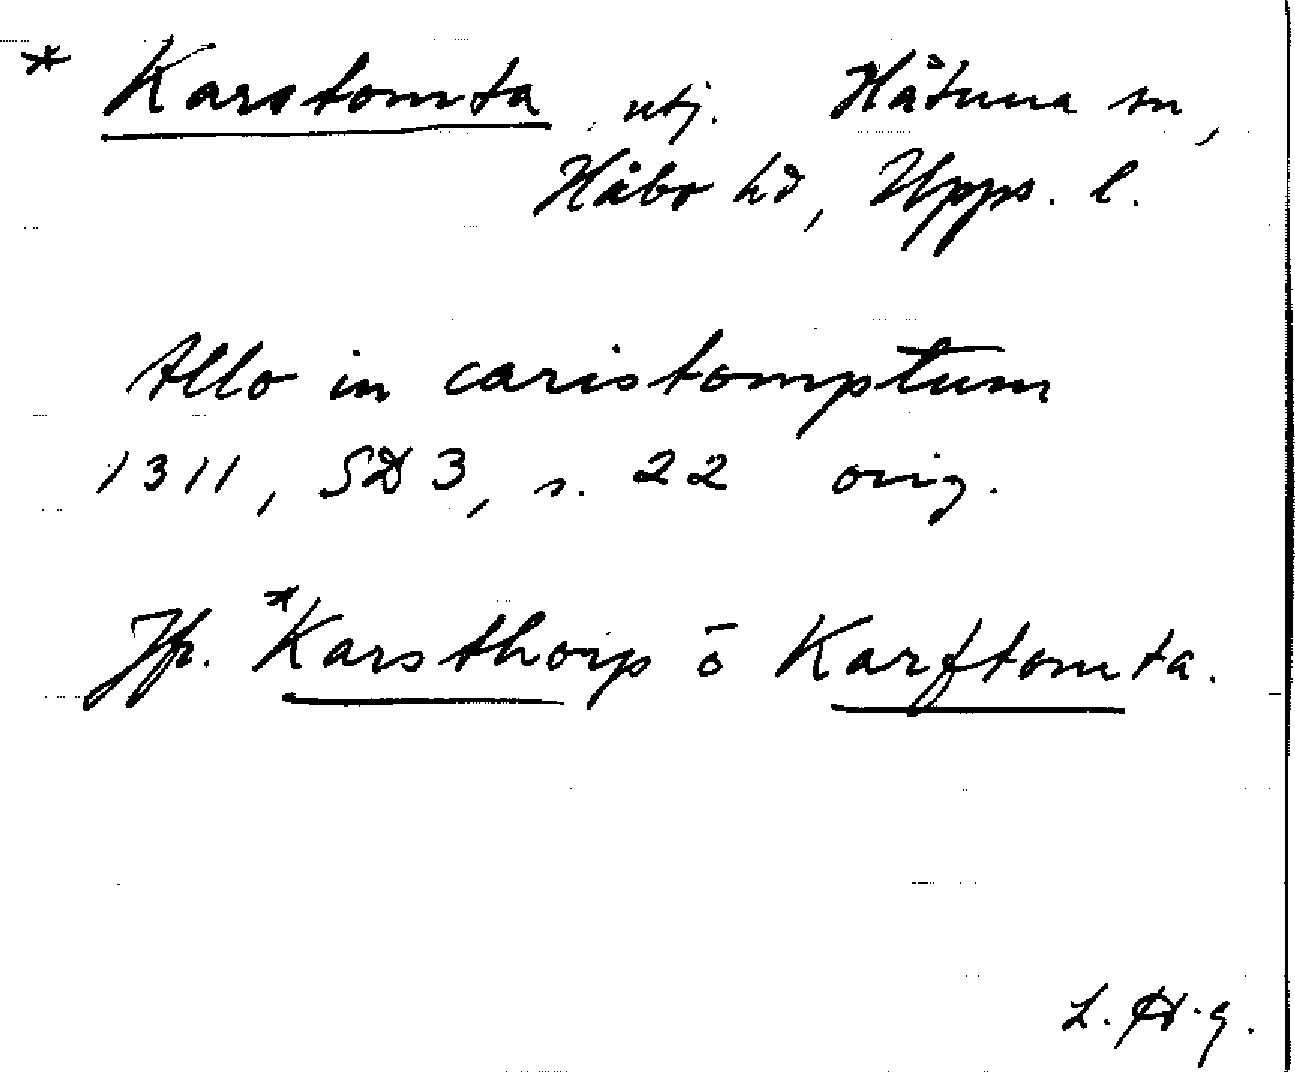 * Karstomta, utj. Håtuna sn,
Håbo hd, Upps. l.
Allo in caristomptum
1311, SD 3, s. 22 orig.
Jfr. *Karsthorp ō Karftomta.
L. H-g.